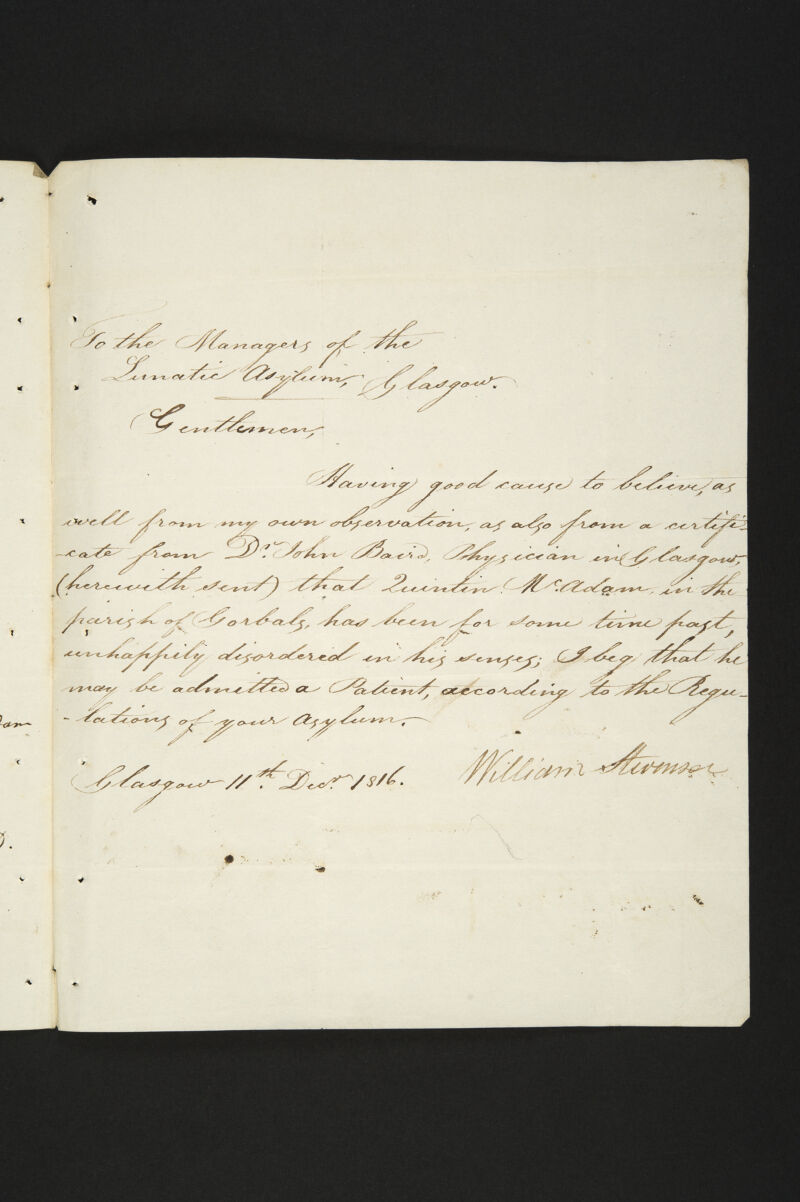 To the Managers of the
Lunatic Asylum, Glasgow.
Gentlemen,
Having good cause to believe, as
well from my own observation, as also from a certifi-
-cate from Dr. John Baird, Physician in Glasgow,
(herewith sent) that Quintin McAdam, in the
parish of Gorbals, has been for some time past,
unhappily disordered in his senses; I beg that he
may be admitted a Patient, according to the Regu-
-lations of your Asylum.
Glasgow 11th. Decr. 1816.
William Stevenson